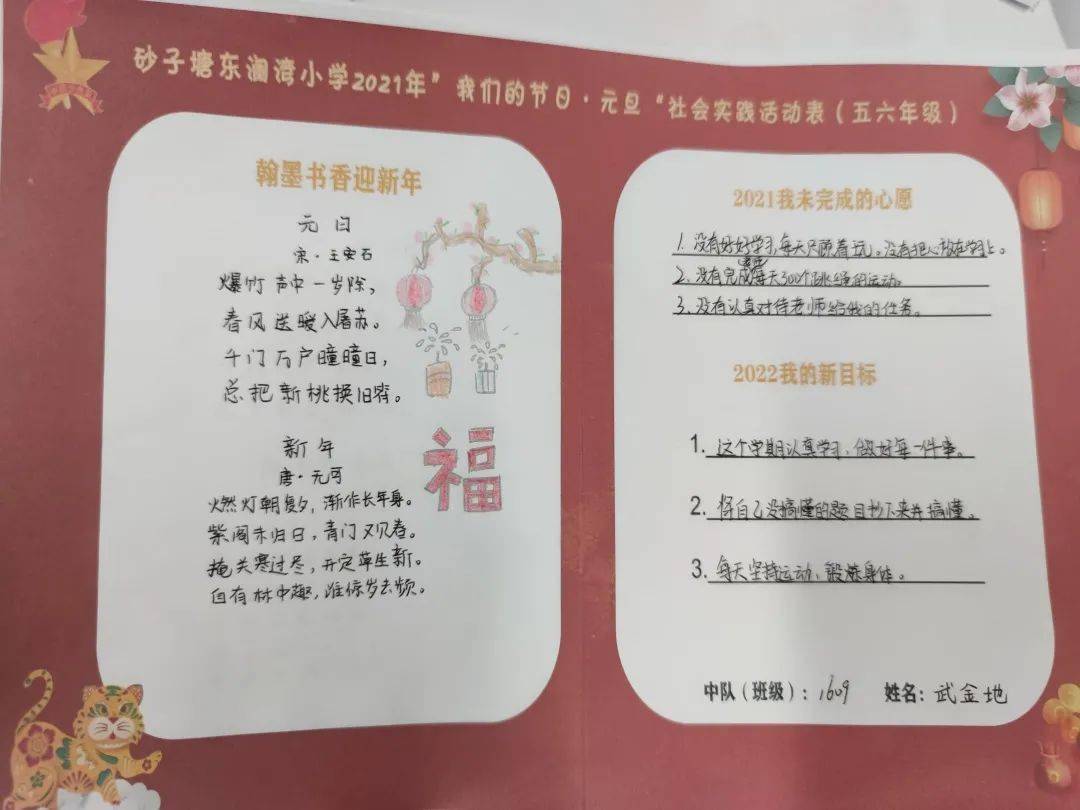 砂子塘东澜湾小学2021年”我们的节日·元旦“社会实践活动表（五六年级）
翰墨书香迎新年
元日
宋·王安石
爆竹声中一岁除，
春风送暖入屠苏。
千门万户曈曈日，
总把新桃换旧符。
新年
唐·元可
燃灯朝复夕，渐作长年身。
紫阁未归日，青门又见春。
掩关寒过尽，开定草生新。
自有林中趣，谁惊岁去频。
福
2021我未完成的心愿
1.没有好好学习，每天只顾着玩。没有把心放在学习上。
2、没有完成每天300个跳绳的运动。
3、没有认真对待老师给我的任务。
2022我的新目标
1.这个学期认真学习，做好每一件事。
2.将自己没搞懂的题目抄下来并搞懂。
3.每天坚持运动，锻炼身体。
中队（班级）：1609 姓名：武金地